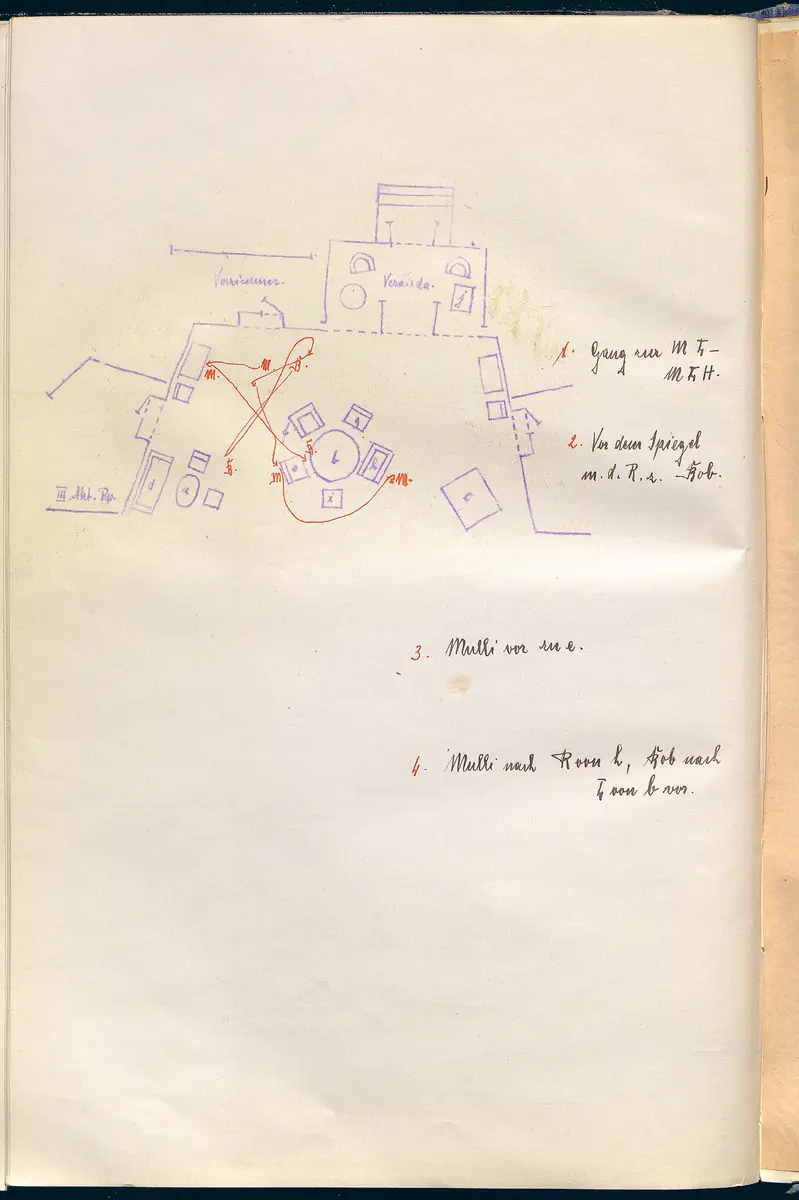 Vorzimmer.
Veranda.
g
M.
M
B.
B.
B.
M
M.
q
b
h
e
i
c
d
a
III. Akt. Rp.
1. Gang zur M Tr –
M Tr H.
2. Vor dem Spiegel
m. d. R. z. Kob.
3. Mulli vor zu e.
4. Mulli nach R von h, Kob nach
L von b vor.